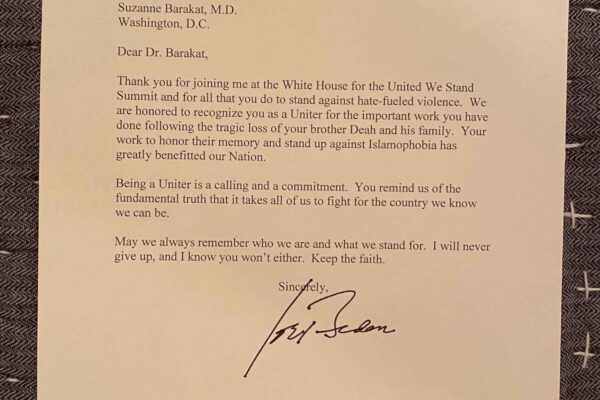 Suzanne Barakat, M.D.
Washington, D.C.
Dear Dr. Barakat,
Thank you for joining me at the White House for the United We Stand
Summit and for all that you do to stand against hate-fueled violence. We
are honored to recognize you as a Uniter for the important work you have
done following the tragic loss of your brother Deah and his family. Your
work to honor their memory and stand up against Islamophobia has
greatly benefitted our Nation.
Being a Uniter is a calling and a commitment. You remind us of the
fundamental truth that it takes all of us to fight for the country we know
we can be.
May we always remember who we are and what we stand for. I will never
give up, and I know you won't either. Keep the faith.
Sincerely,
Joe Biden